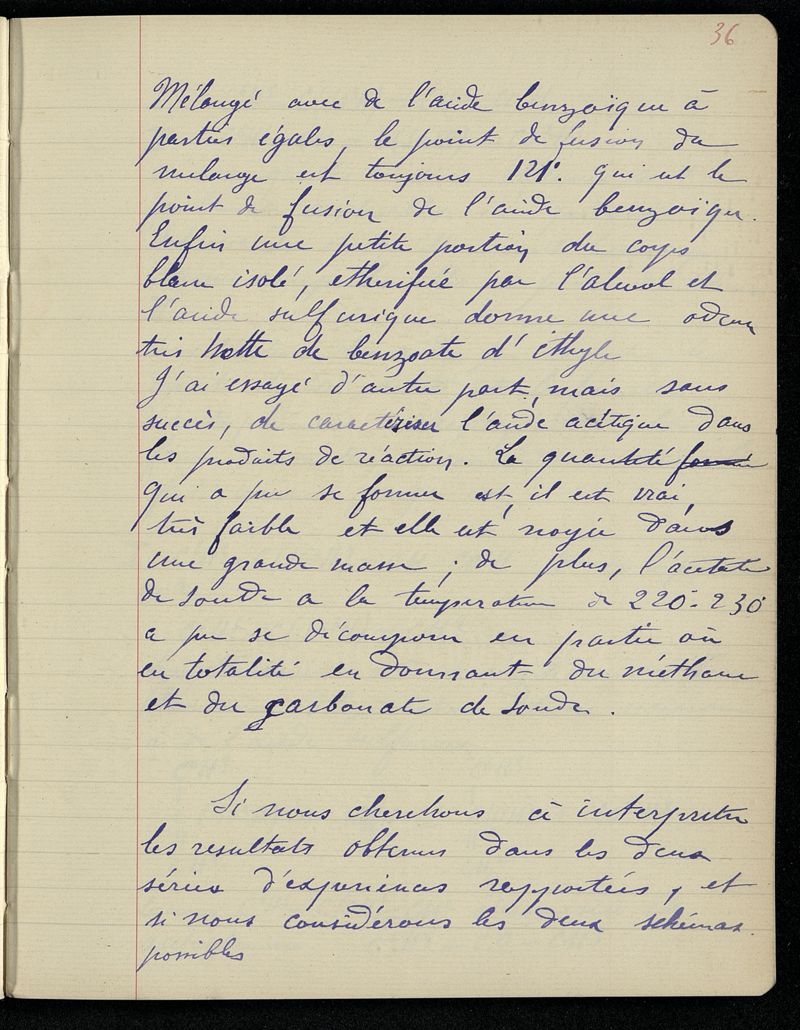 36
Mélangé avec de l'acide benzoïque à
parties égales, le point de fusion du
mélange est toujours 121°. qui est le
point de fusion de l'acide benzoïque.
Enfin une petite portion du corps
blanc isolé, etherifié par l'alcool et
l'acide sulfurique donne une odeur
très nette de benzoate d'éthyle
J'ai essayé d'autre part, mais sans
succès, de caractériser l'acide acétique dans
les produits de réaction. La quantité formée
qui a pu se former est, il est vrai,
très faible et elle est noyée dans
une grande masse ; de plus, l'acétate
de soude a la température de 220°-230°
a pu se décomposer en partie ou
en totalité en donnant du méthane
et du carbonate de soude.
Si nous cherchons à interpreter
les resultats obtenus dans les deux
séries d'experiences rapportées, et
si nous considérons les deux schémas
possibles